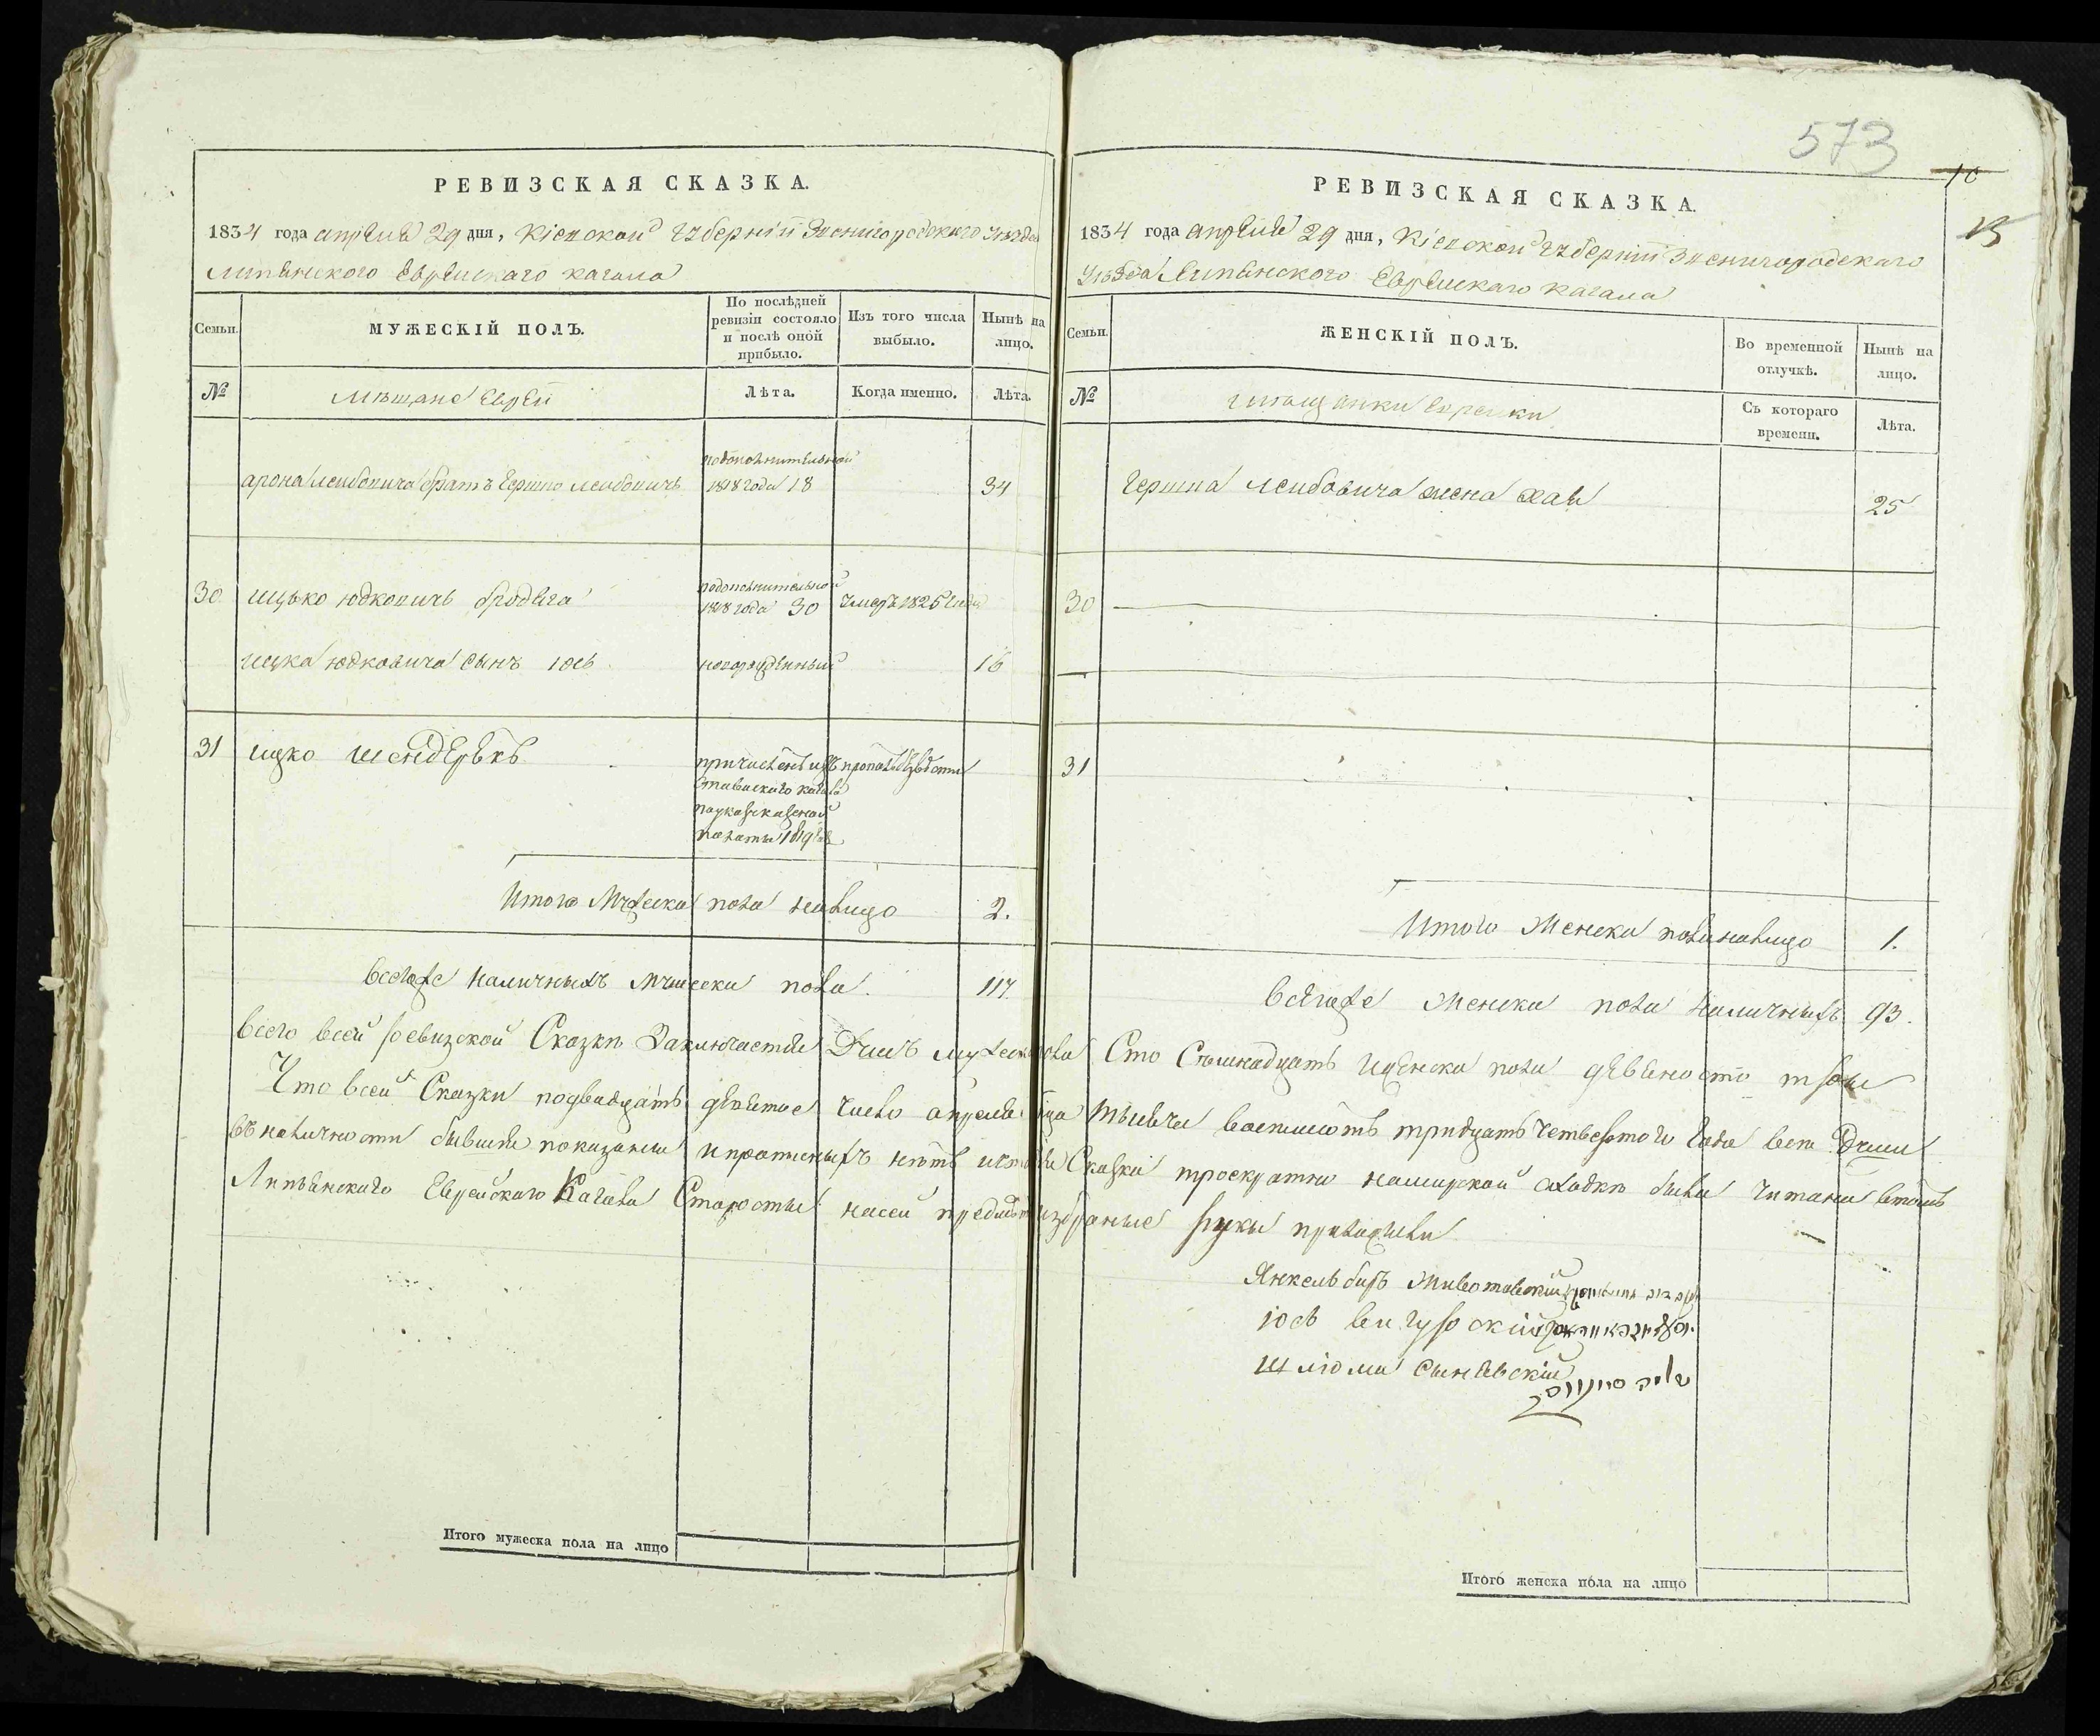 РЕВИЗСКАЯ СКАЗКА.
1834 года апреля 29 дня, Кіевской Губерніи Звенигородскаго Уезда
Липянского Еврейскаго кагала
Семьи.
МУЖЕСКІЙ ПОЛЪ.
По послѣдней ревизіи состояло и послѣ оной прибыло.
Изъ того числа выбыло.
Нынѣ на лицо.
№
Мещане Евреи
Лѣта.
Когда именно.
Лѣта.
арона Лейбовича братъ Гершко Лейбовичъ
подополнительной
1818 года 18
34
30
ицько юдковичъ бродяга
подополнительной
1818 года 30
умеръ 1825 года
ицка юдковича сынъ іось
новорожденный
16
31
ицко шендерекъ
причисленъ изъ
кагала
по указу казенной
палаты 1819
Итого Мужеска пола налицо 2.
всегоже наличныхъ мужеска пола. 117.
РЕВИЗСКАЯ СКАЗКА.
573
10
13
1834 года апреля 29 дня, Кіевской Губерніи Звенигородскаго
Уезда Липянского Еврейскаго кагала
Семьи.
ЖЕНСКІЙ ПОЛЪ.
Во временной отлучкѣ.
Нынѣ на лицо.
№
мещанки еврейки
Съ котораго времени.
Лѣта.
Гершка Лейбовича жена хая
25
30
31
Итого Женска пола налицо 1.
всегоже женска пола наличныхъ 93.
всего всей ревизской Сказки Заключается Душъ мужеска пола Сто Семнадцать Иженска пола девеносто три
Что всей Сказки подвадцать девятое число апреля тысячи восемьсотъ тридцать четвертого Года все Души
въ наличности бывшие показаны и прописныхъ нетъ Сказка троекратно намирской сходки была читана втомъ
Липянскаго Еврейскаго Кагала Старосты насей предметъ избраные руки приложили
Янкель биръ Животовскій
іось вигуровскій
шліома Сынявскій
Итого мужеска пола на лицо
Итого женска пола на лицо